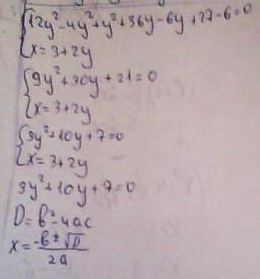 12y²-4y²+y²+36y-6y+27-6=0
x=3+2y
9y²+30y+21=0
x=3+2y
3y²+10y+7=0
x=3+2y
3y²+10y+7=0
D=b²-4ac
x=-b±√D/2a